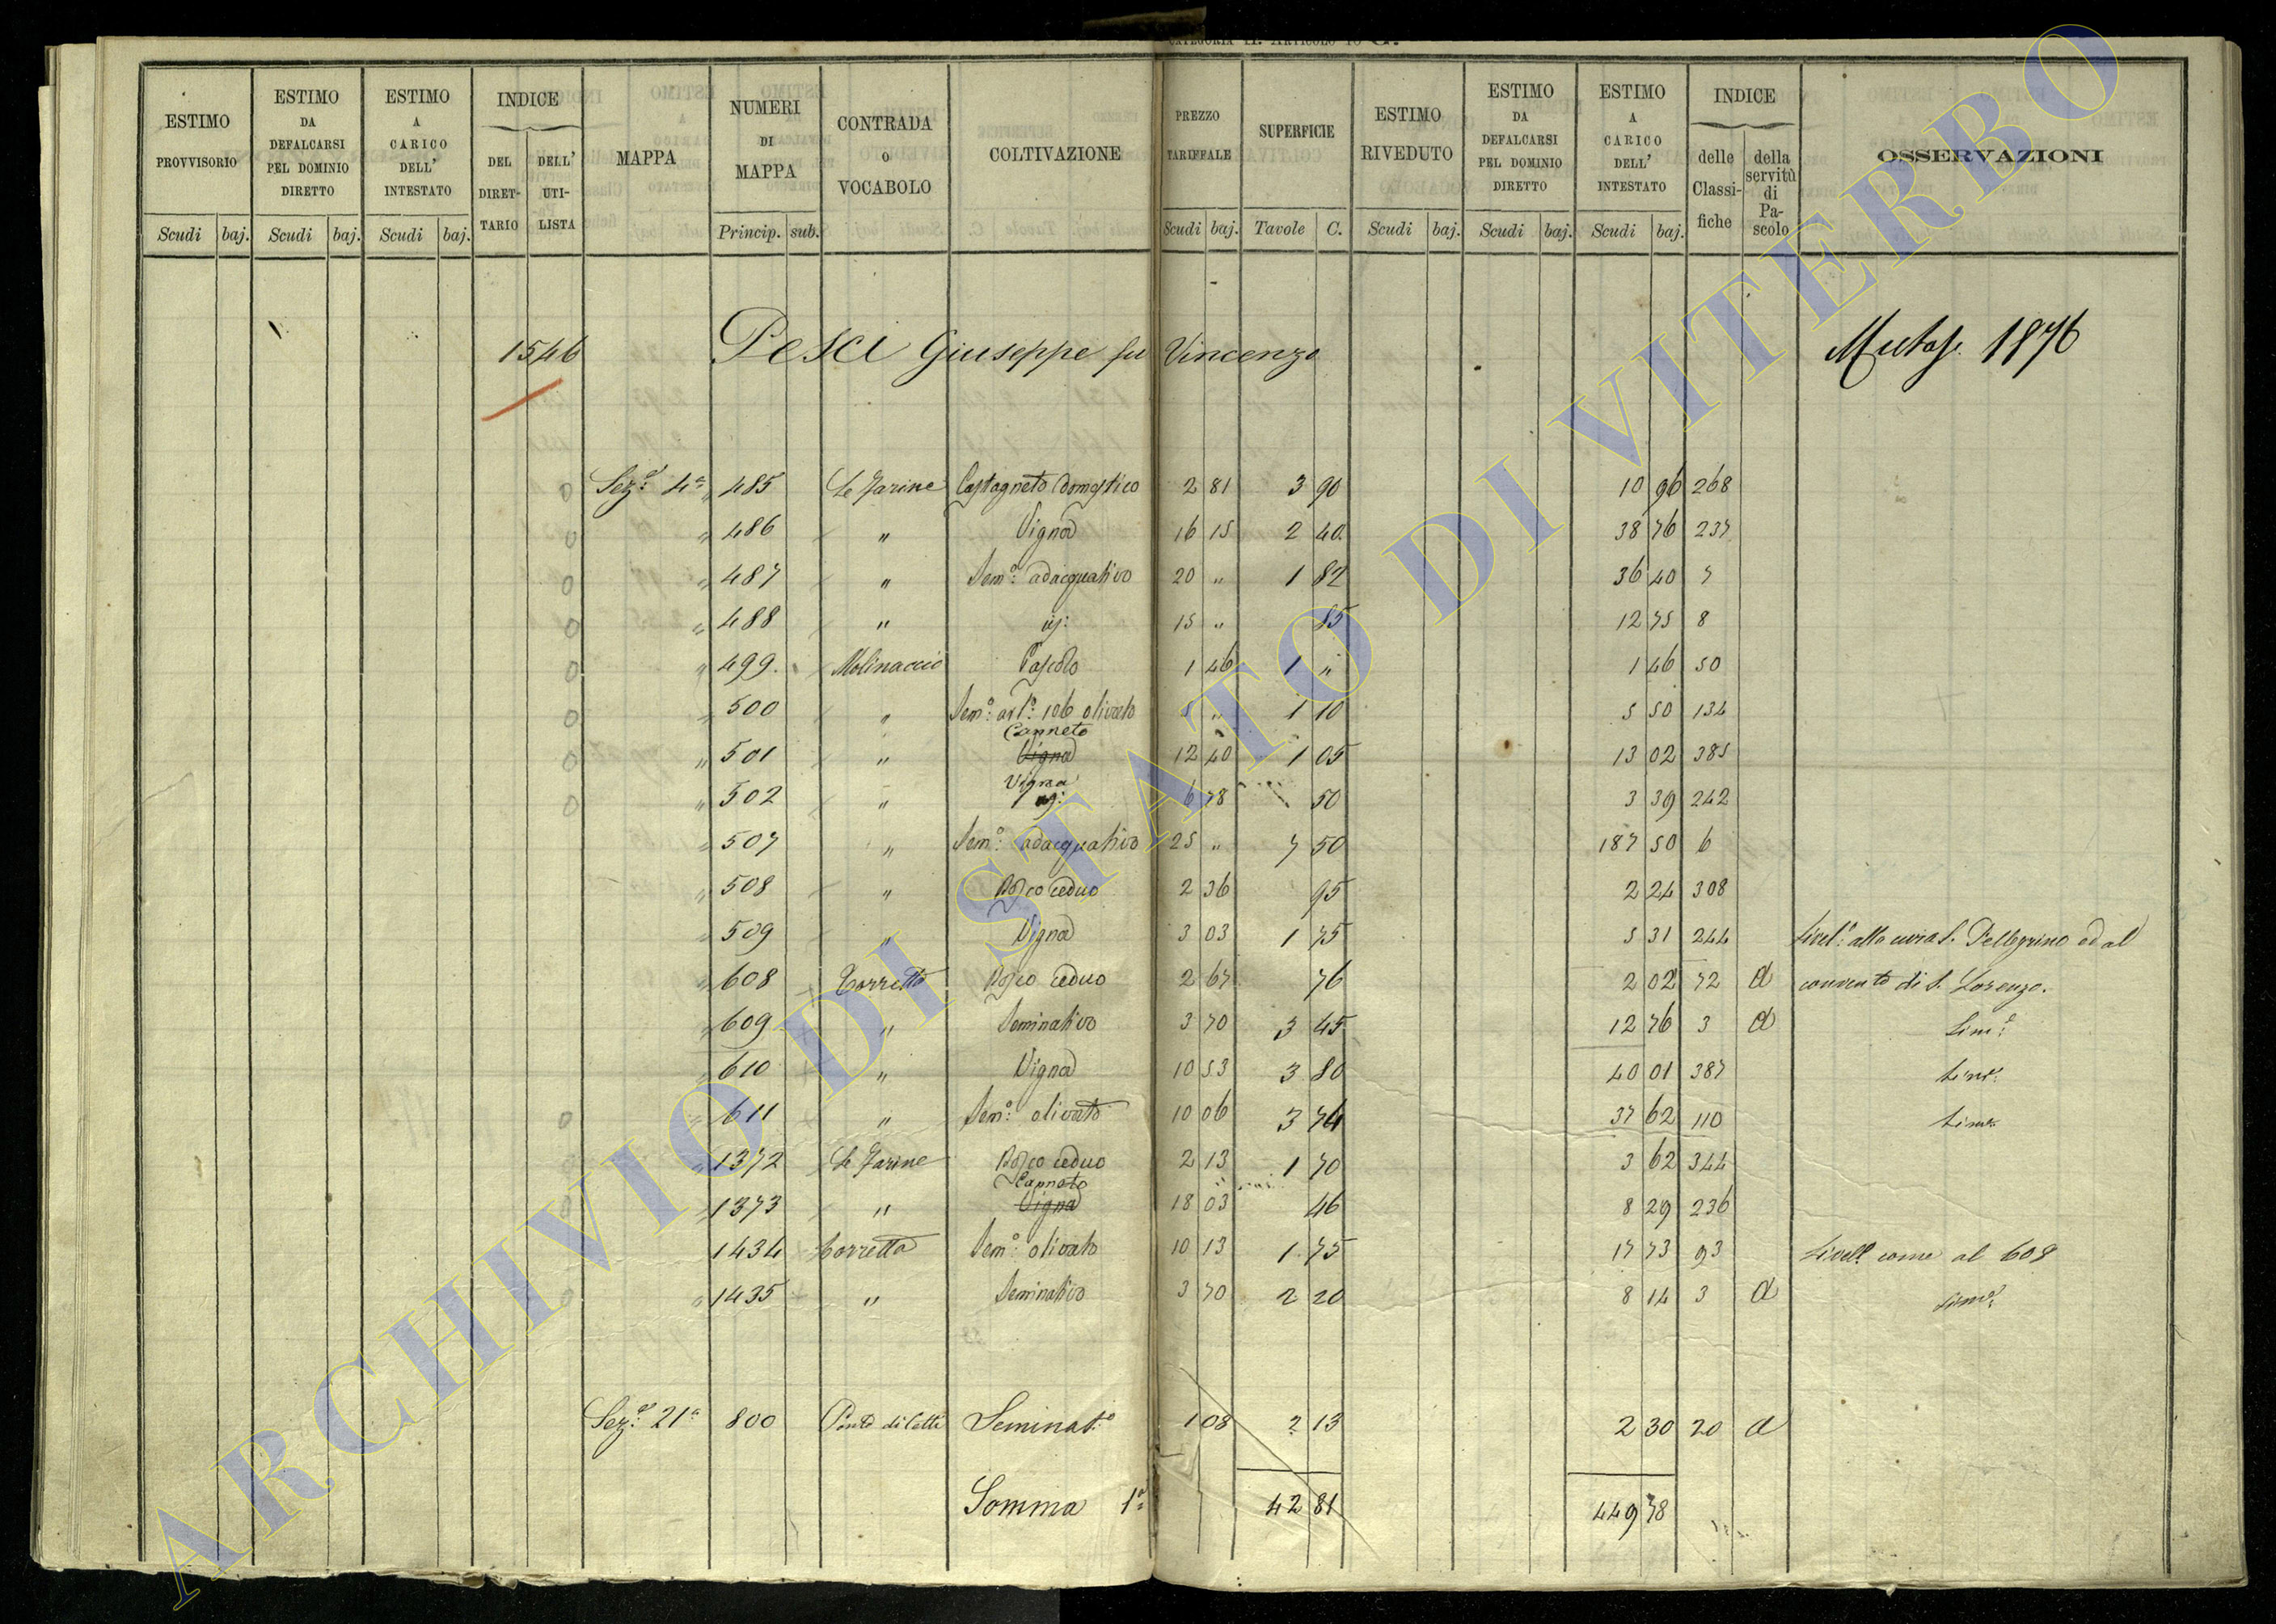 CATEGORIA II. ARTICOLO 10 G.
ESTIMO PROVVISORIO Scudi baj.
ESTIMO DA DEFALCARSI PEL DOMINIO DIRETTO Scudi baj.
ESTIMO A CARICO DELL' INTESTATO Scudi baj.
INDICE DEL DIRETTARIO DELL' UTILISTA
MAPPA
NUMERI DI MAPPA Princip. sub.
CONTRADA O VOCABOLO
COLTIVAZIONE
PREZZO TARIFFALE Scudi baj.
SUPERFICIE Tavole C.
ESTIMO RIVEDUTO Scudi baj.
ESTIMO DA DEFALCARSI PEL DOMINIO DIRETTO Scudi baj.
ESTIMO A CARICO DELL' INTESTATO Scudi baj.
INDICE delle Classifiche della servitù di Pascolo
OSSERVAZIONI
1546 Pesci Giuseppe fu Vincenzo 1876
0 Sez.e 4a " 485 Le Farine Castagneto domestico 2 81 3 90 10 96 268
0 " 486 " Vigna 16 15 2 40 38 76 237
0 " 487 " Sem.o adacquativo 20 " 1 82 36 40 7
0 " 488 " id: 15 " 85 12 75 8
0 " 499 Molinaccio Pascolo 1 46 1 " 1 46 50
0 " 500 " Sem.o art.o 106 olivato 5 " 1 10 5 50 134
Canneto
0 " 501 " Vigna 12 40 1 05 13 02 385
Vigna
0 " 502 " id: 6 78 50 3 39 242
" 507 " Sem.o adacquativo 25 " 7 50 187 50 6
" 508 " Bosco ceduo 2 36 95 2 24 308
" 509 " Vigna 3 03 1 75 5 31 244 Livel.o alla cura S. Pellegrino ed al
" 608 Torretta Bosco ceduo 2 67 76 2 02 72 a convento di S. Lorenzo.
" 609 " Seminativo 3 70 3 45 12 76 3 a Sim.e
" 610 " Vigna 10 53 3 80 40 01 387 Sim.e
0 " 611 " Sem.o olivato 10 06 3 74 37 62 110 Sim.e
" 1372 Le Farine Bosco ceduo 2 13 1 70 3 62 344
Capnato
" 1373 " Vigna 18 03 46 8 29 236
1434 Torretta Sem.o olivato 10 13 1 75 17 73 93 Livell. come al 608
" 1435 " Seminativo 3 70 2 20 8 14 3 a Sim.e
Sez.e 21a 800 Ponte di Cetti Seminat.o 1 08 2 13 2 30 20 a
Somma 1a 42 81 449 78
ARCHIVIO DI STATO DI VITERBO